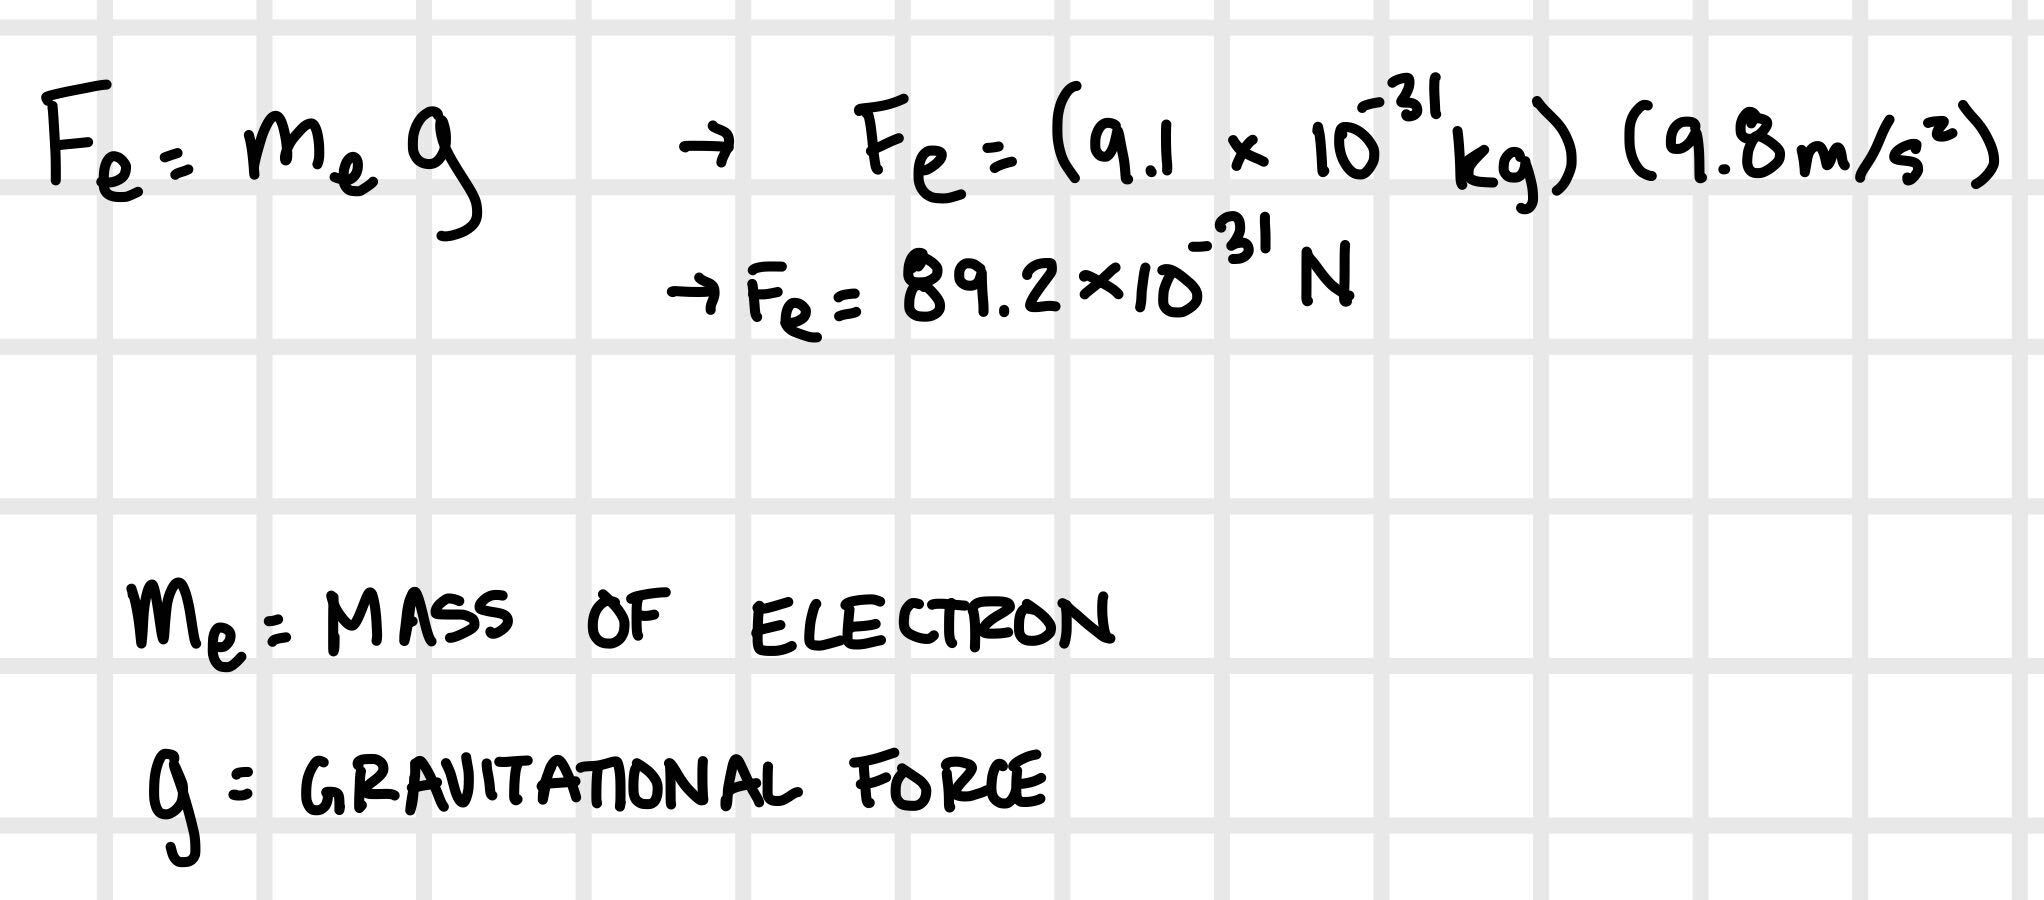 Fₑ = mₑ g → Fₑ = (9.1 × 10⁻³¹ kg) (9.8 m/s²)
→ Fₑ = 89.2 × 10⁻³¹ N
mₑ = MASS OF ELECTRON
g = GRAVITATIONAL FORCE